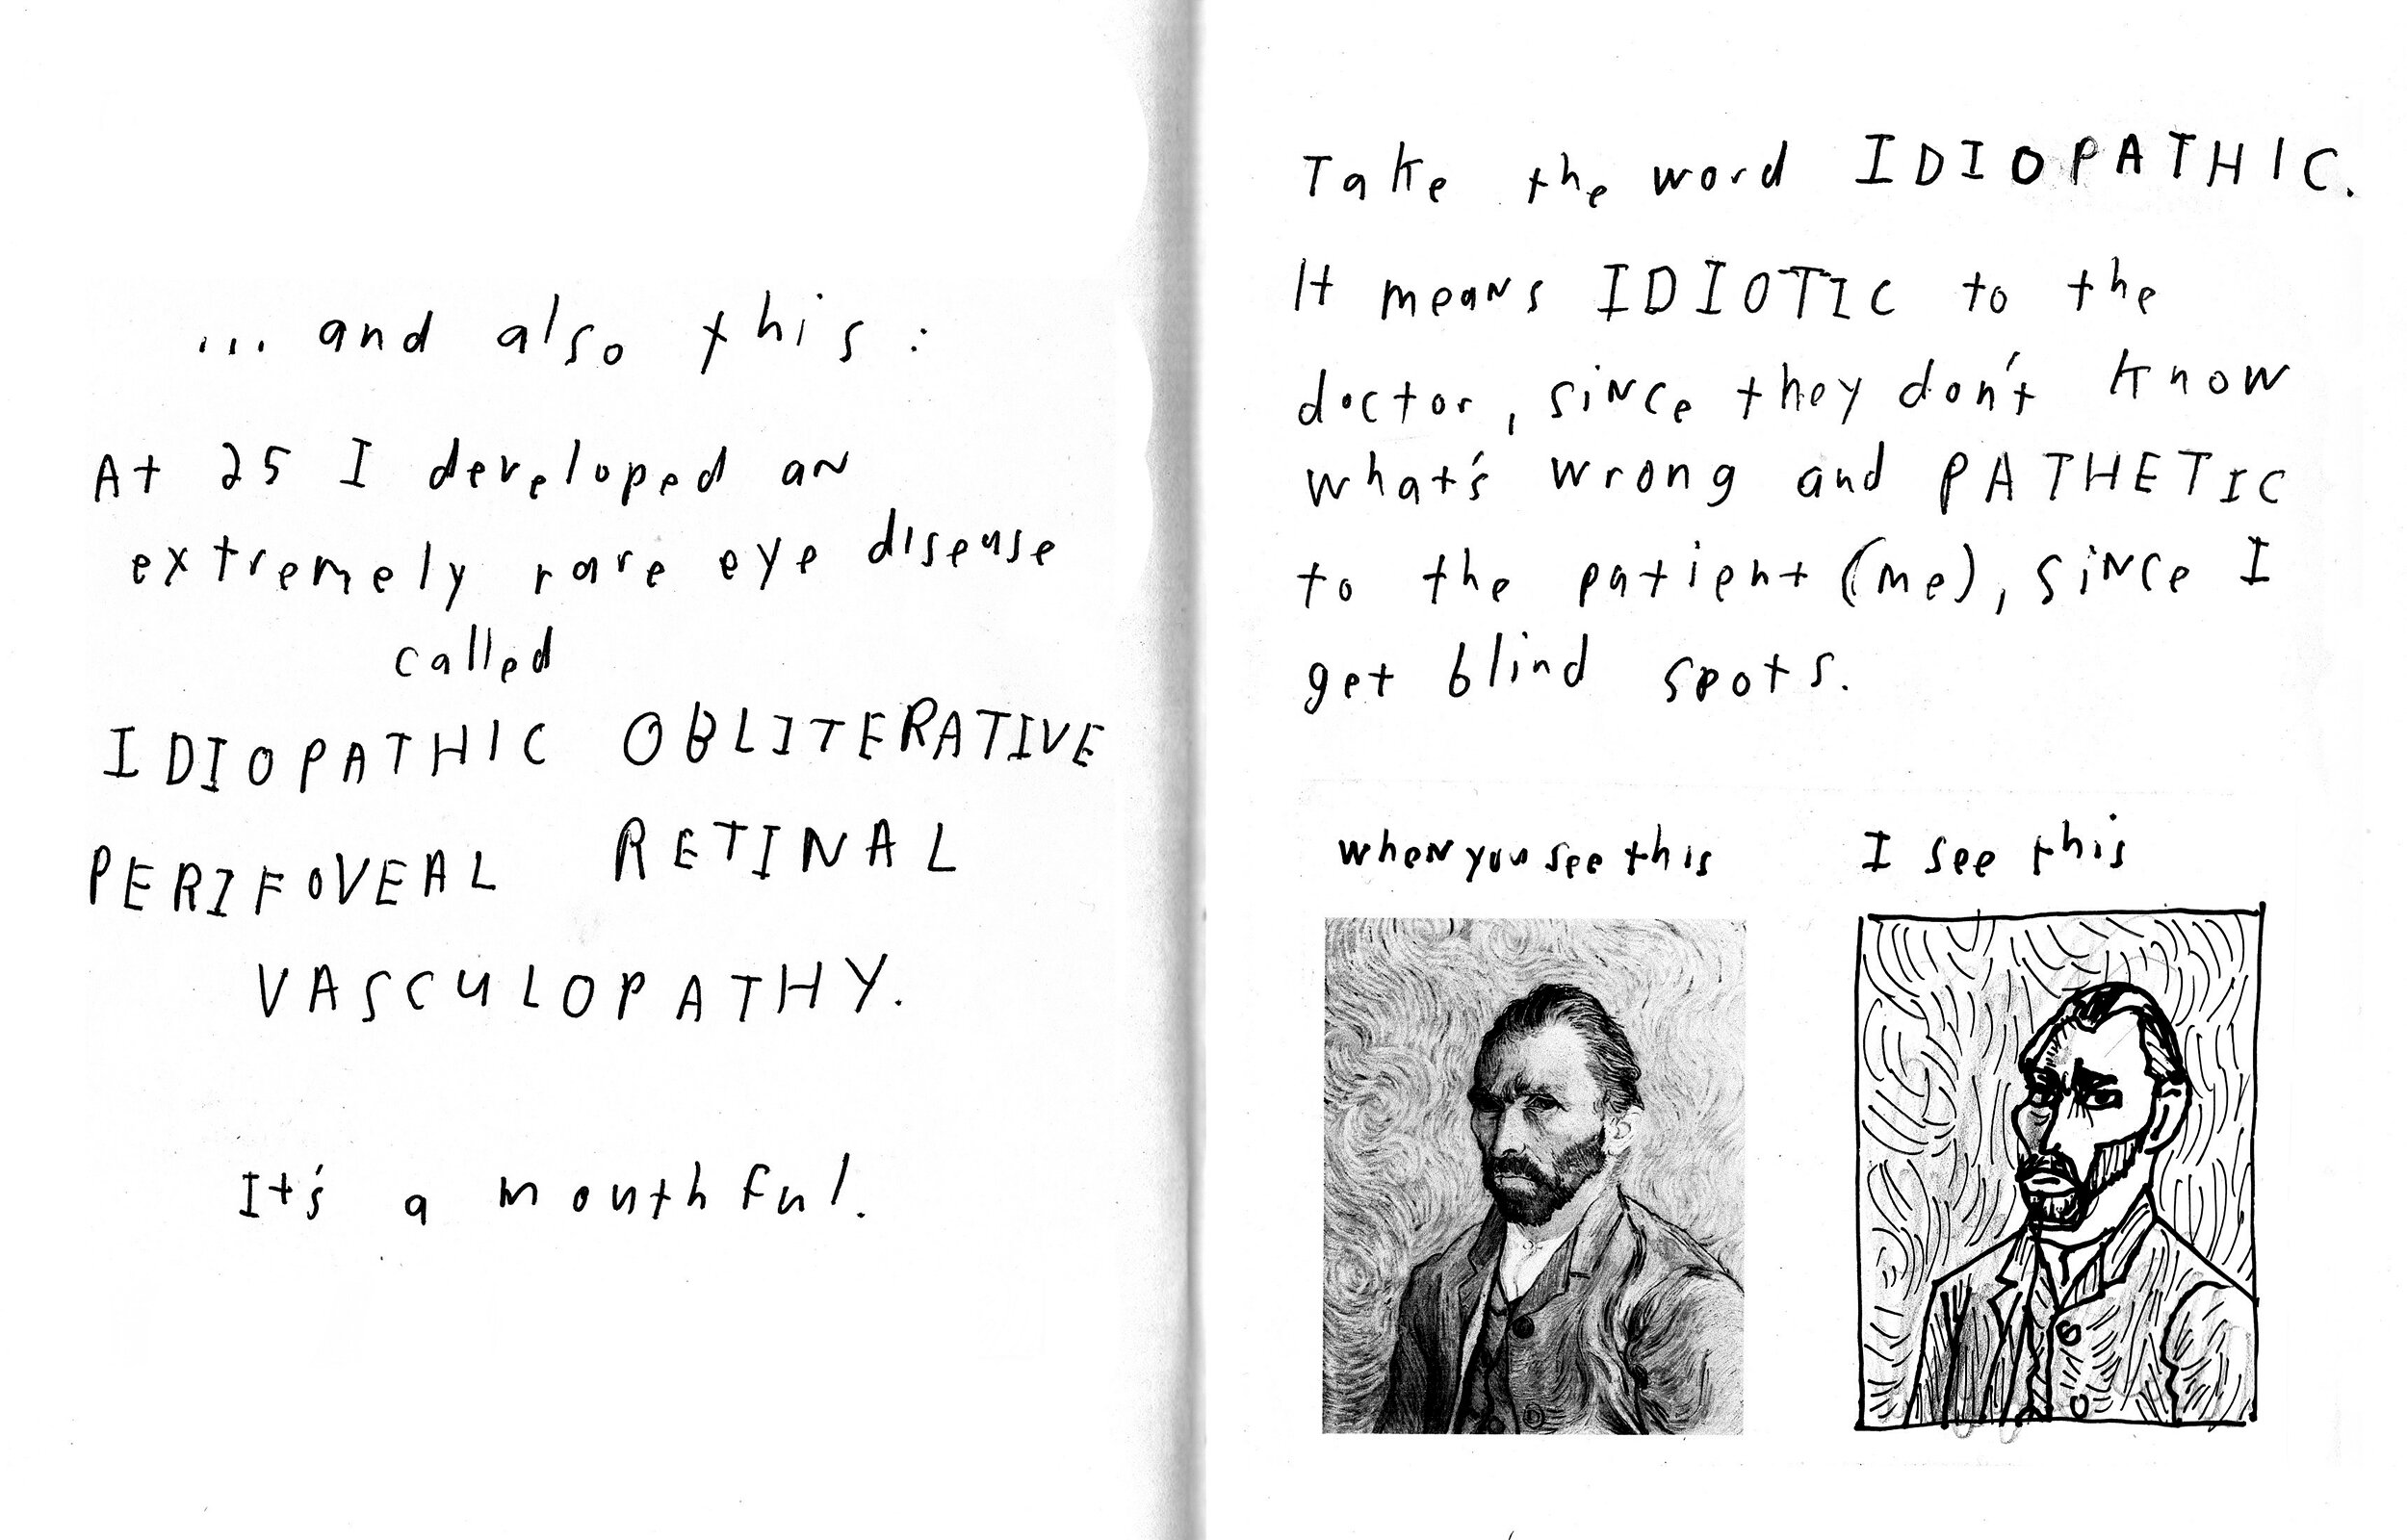 ... and also this:
At 25 I developed an
extremely rare eye disease
called
IDIOPATHIC OBLITERATIVE
PERIFOVEAL RETINAL
VASCULOPATHY.
It's a mouthful.
Take the word IDIOPATHIC.
It means IDIOTIC to the
doctor, since they don't know
what's wrong and PATHETIC
to the patient (me), since I
get blind spots.
when you see this
I see this